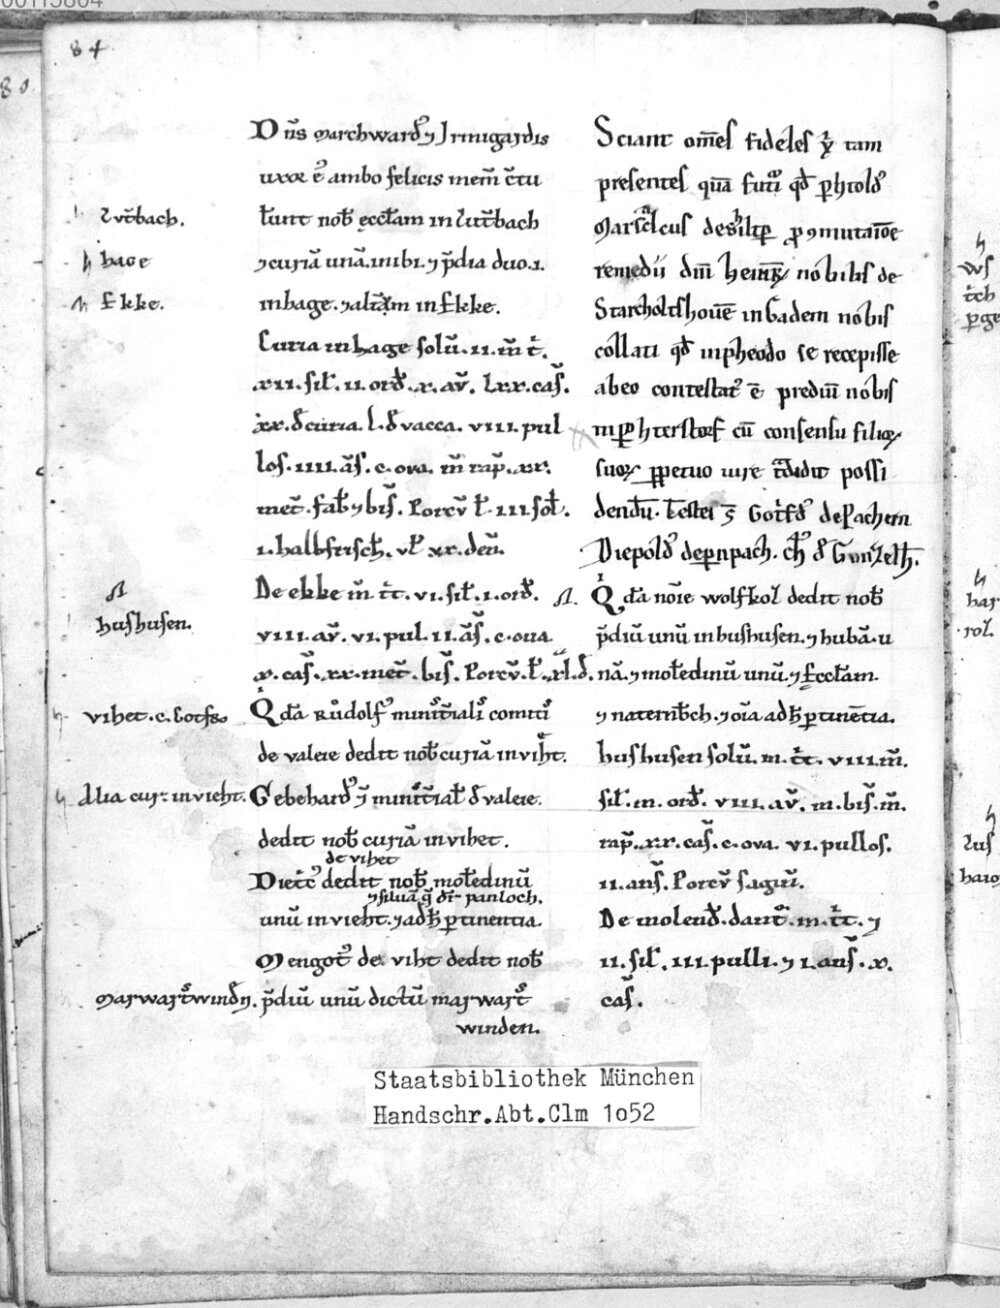 84
Dn̄s marchward⁹ ⁊ Irmigardis
uxor ei⁹ ambo felicis mem̄ c̄tu
lut̄bach.
lerunt nob̄ eccl̄am in lut̄bach
hage
⁊curiā unā.inibi.⁊ p̄dia duo.i.
Ekke.
inhage.⁊alt̄am in Ekke.
Curia in hage solū.ii.m̄ t̄.
xii.sil̄.ii.ord̄.x.av̄.lxx.cas̄.
xx.d̄ curia.l.d̄ vacca.viii.pul
los.iiii.ās.c.ova.m̄ rap̄.xx.
met̄.fab̄ ⁊ bis̄.Porcū t̄.iii sol̄.
i.halbfrisch̄.vl̄ xx.den̄.
De ekke m̄ t̄t.vi.sil̄.i.ord̄.
hushusen.
viii.av̄.vi.pul.ii.ās̄.c.oua
x.cas̄.xx.met̄.bis̄.Porcū.t̄.xl.d̄.
Qd̄a Rudolf⁹ minist̄ialis comit̄
de valeie dedit nob̄ curiā in vih̄t.
Alia cur̄ in vieht.
Gebehard⁹ ⁊ minist̄ial̄ d̄ valeie.
dedit nob̄ curiā in vihet.
de vihet
Diet̄c⁹ dedit nob̄ mol̄edinū
⁊siluā q̄ dr̄ panloch.
unū in vieht.⁊ad h̄ ptinentia.
Mengot⁹ de viht dedit nob̄
marwartwindn̄.
p̄diū unū dictū marwart
winden.
Sciant om̄es fideles x̄ tam
presentes quā futi⁹ qd̄ phtold⁹
Marscalcus de shiltp̄ p ⁊mutatiōe
remedii dn̄i heinr̄ nobilis de
Starcholtshouē in Gadem nobis
collati qd̄ inpheodo se recepisse
abeo contestat⁹ ē prediū nobis
in phterstorf cū consensu filior̄
suor̄ ppetuo iure t̄didit possi
dendū.Testes s̄ Gotfd⁹ de Pachem
Diepold⁹ de pnpach.ch⁹ d̄ Gunzelh̄.
Qd̄a noīe wolfkol dedit nob̄
p̄diū unū in hushusen.⁊ hubā.u
nā.⁊ mol̄edinū unū.⁊ Eccl̄am.
⁊ naternb̄ch.⁊ oīa ad h̄ ptinētia.
hushusen solū.m.t̄t.viii.m̄.
sil̄.m.ord̄.viii.av̄.m.bis̄.m̄.
rap̄.xx.cas̄.c.ova.vi.pullos.
ii.ans̄.Porcū sagin̄.
De molend̄.dant̄.m.t̄t.⁊
ii.sil̄.iii.pulli.⁊ i.ans̄.x.
cas̄.
Staatsbibliothek München
Handschr.Abt.Clm 1o52